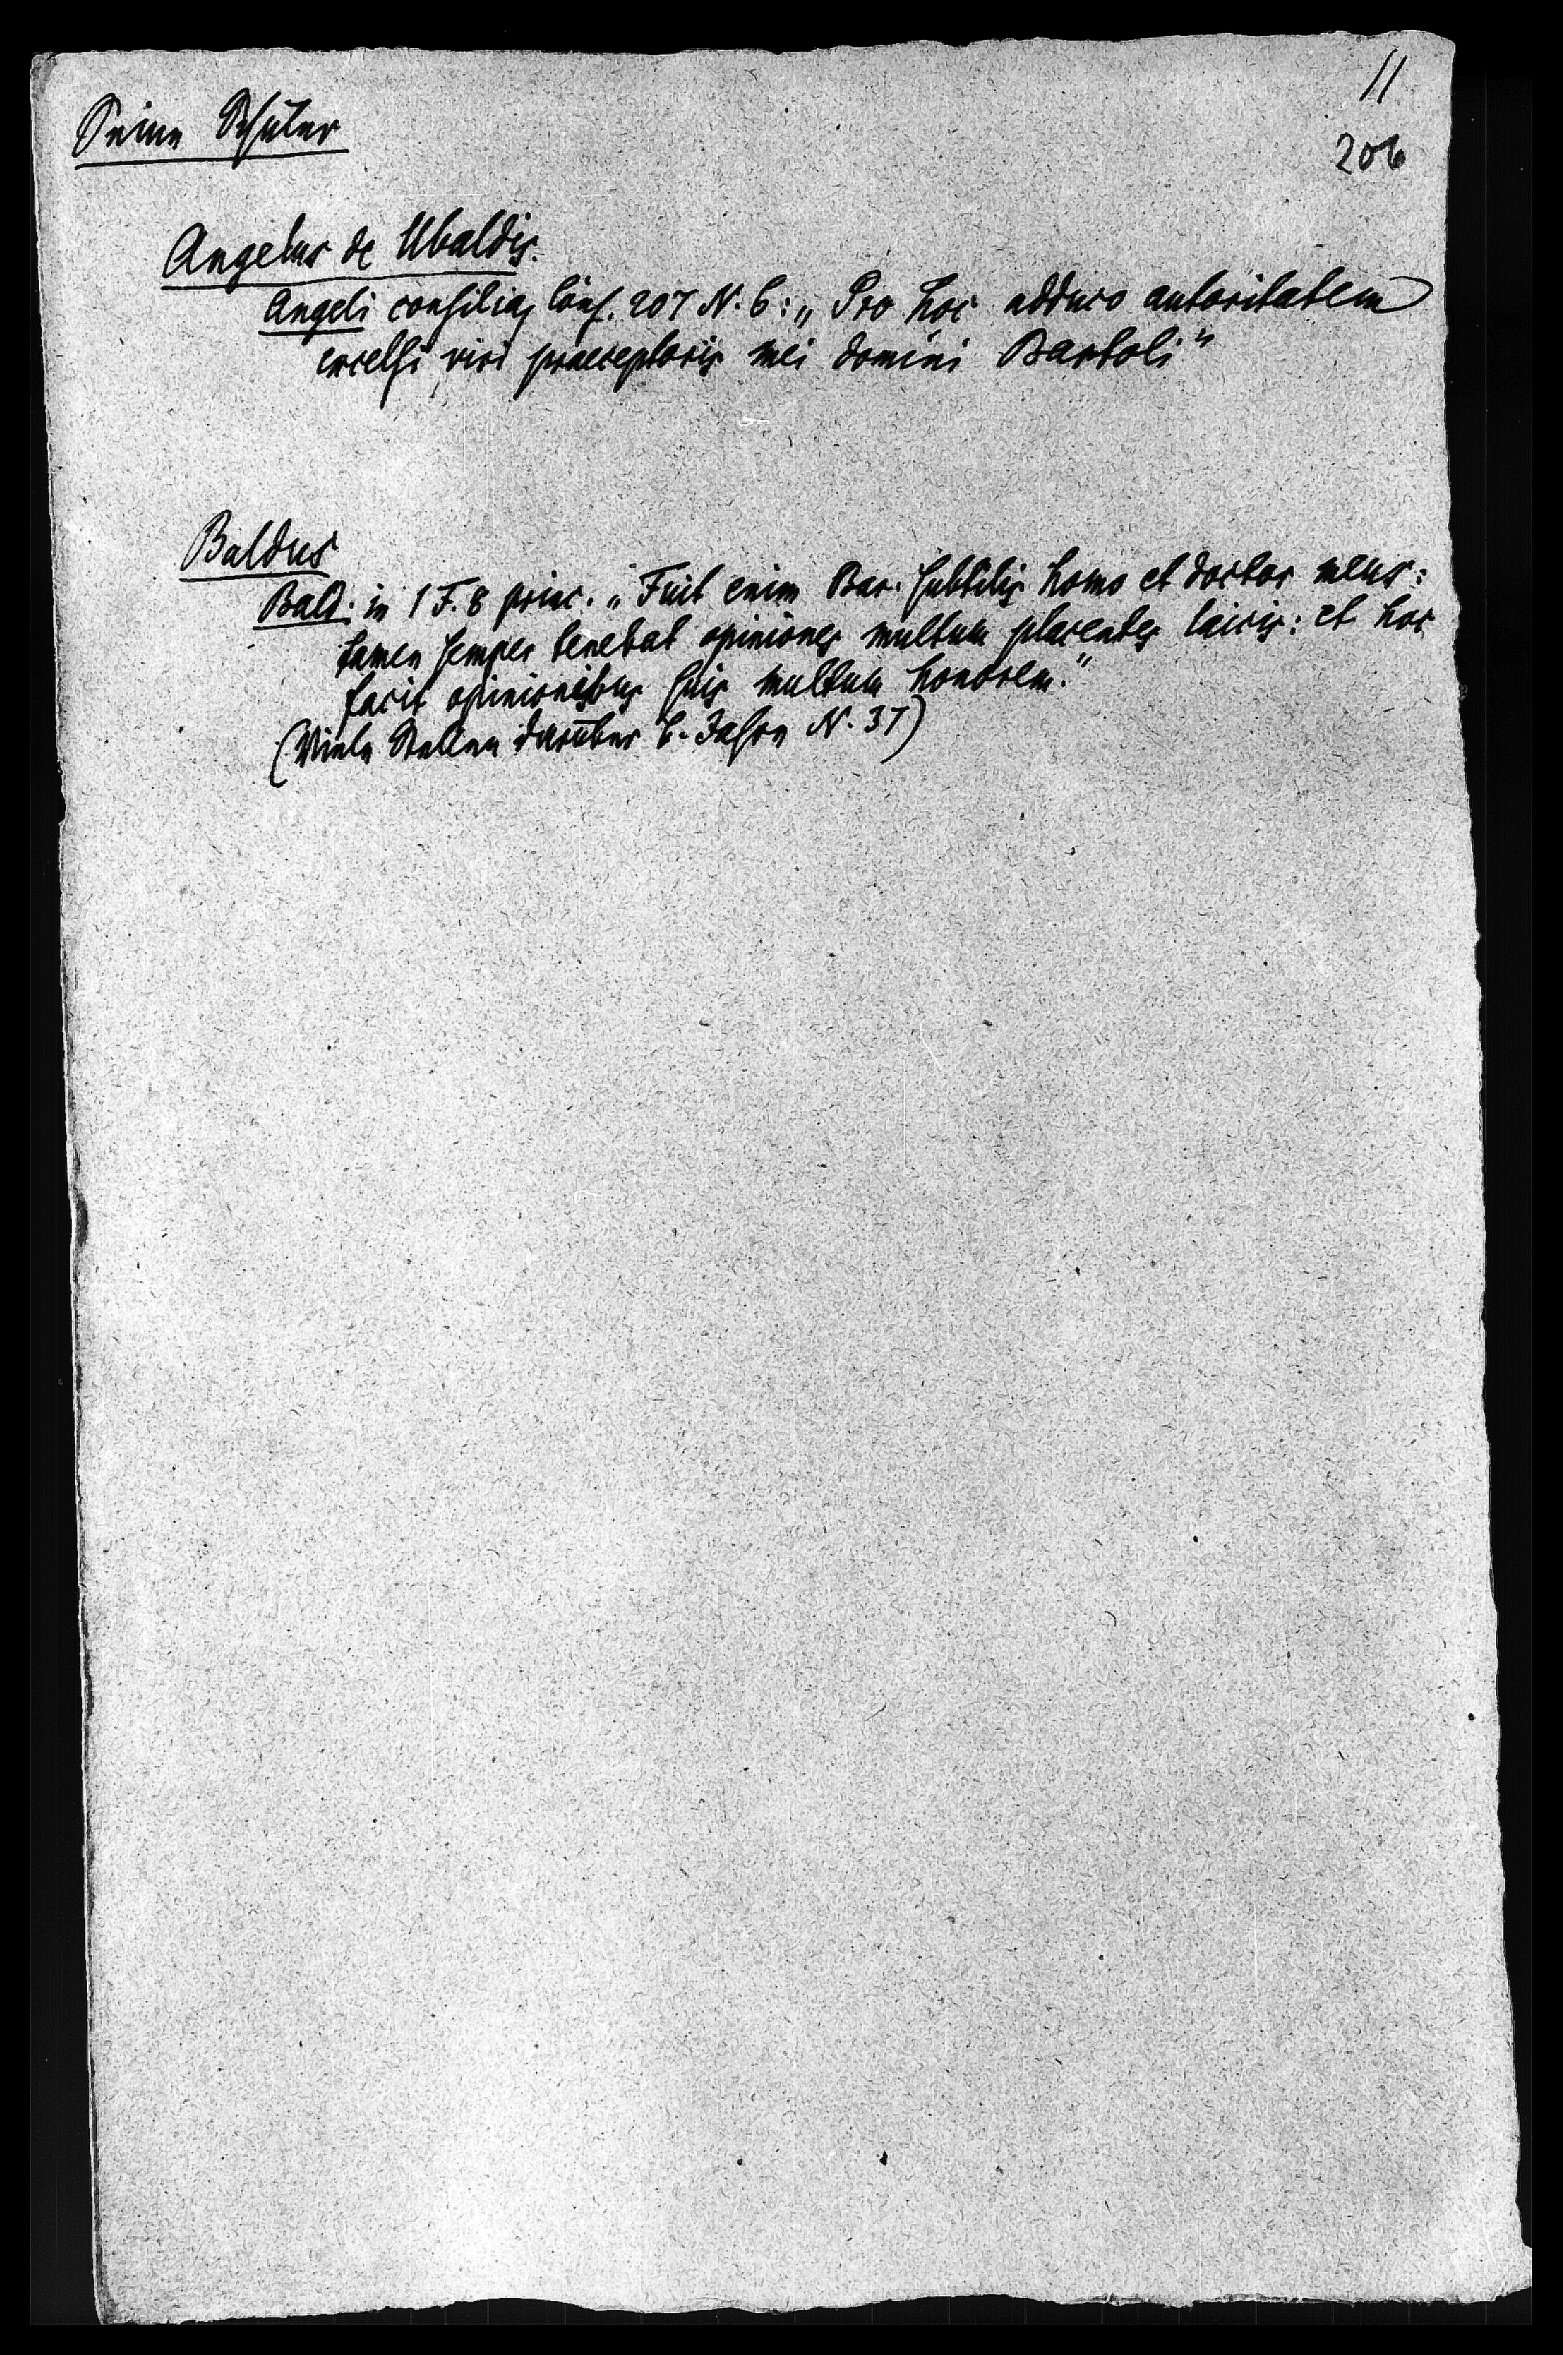 11
Seine Schüler
206
Angelus de Ubaldis.
Angeli consilia, Cons. 207 N. 6: „Pro hoc adduco autoritatem
excelsi viri praeceptoris mei domini Bartoli“
Baldus
Bald. in 1 F. 8 princ. „Fuit enim Bar. subtilis homo et doctor meus:
tamen semper tenebat opiniones multum placentes laicis: et hoc
facit opinionibus suis multum honorem.“
(Viele Stellen darüber b. N. 37)